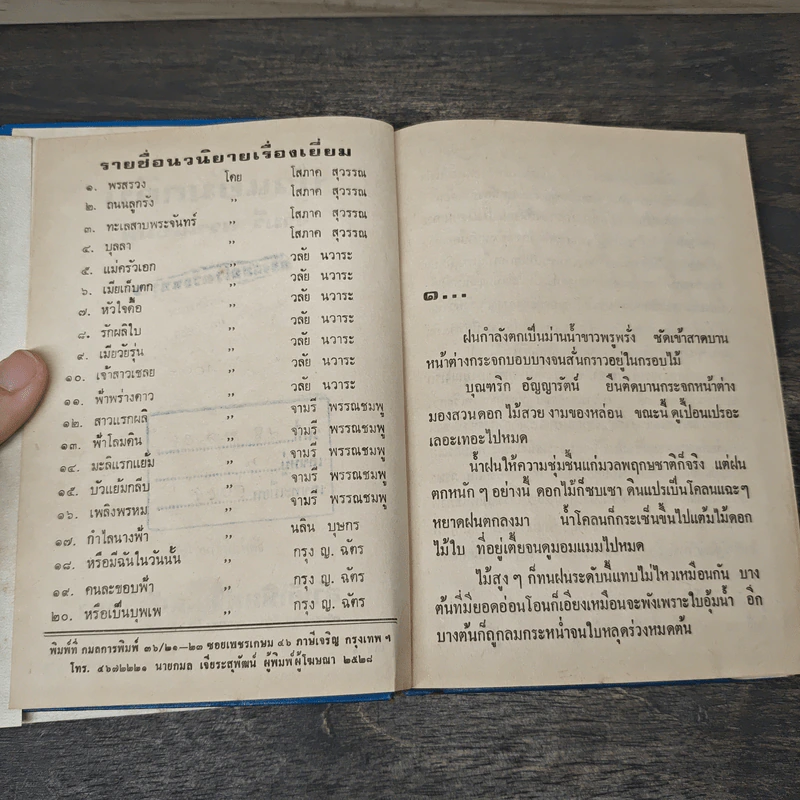 รายชื่อนวนิยายเรื่องเยี่ยม
๑. พรสรวง โดย โสภาค สุวรรณ
๒. ถนนลูกรัง ,, โสภาค สุวรรณ
๓. ทะเลสาบพระจันทร์ ,, โสภาค สุวรรณ
๔. บุลลา ,, โสภาค สุวรรณ
๕. แม่ครัวเอก ,, วลัย นวาระ
๖. เมียเก็บตก ,, วลัย นวาระ
๗. หัวใจดื้อ ,, วลัย นวาระ
๘. รักผลิใบ ,, วลัย นวาระ
๙. เมียวัยรุ่น ,, วลัย นวาระ
๑๐. เจ้าสาวเชลย ,, วลัย นวาระ
๑๑. ฟ้าพร่างดาว ,, จามรี พรรณชมพู
๑๒. สาวแรกผลิ ,, จามรี พรรณชมพู
๑๓. ฟ้าโลมดิน ,, จามรี พรรณชมพู
๑๔. มะลิแรกแย้ม ,, จามรี พรรณชมพู
๑๕. บัวแย้มกลีบ ,, จามรี พรรณชมพู
๑๖. เพลิงพรหม ,, นลิน บุษกร
๑๗. กำไลนางฟ้า ,, กรุง ญ. ฉัตร
๑๘. หรือมีฉันในวันนั้น ,, กรุง ญ. ฉัตร
๑๙. คนละขอบฟ้า ,, กรุง ญ. ฉัตร
๒๐. หรือเป็นบุพเพ ,,
พิมพ์ที่ กมลการพิมพ์ ๓๖/๒๑—๒๓ ซอยเพชรเกษม ๔๖ ภาษีเจริญ กรุงเทพ ฯ
โทร. ๔๖๗๒๒๒๑ นายกมล เจียระสุพัฒน์ ผู้พิมพ์ผู้โฆษณา ๒๕๒๘
๑...
ฝนกำลังตกเป็นม่านน้ำขาวพรูพรั่ง ซัดเข้าสาดบาน
หน้าต่างกระจกบอบบางจนสั่นกราวอยู่ในกรอบไม้
บุณฑริก อัญญารัตน์ ยืนติดบานกระจกหน้าต่าง
มองสวนดอกไม้สวยงามของหล่อน ขณะนี้ดูเปื้อนเปรอะ
เลอะเทอะไปหมด
น้ำฝนให้ความชุ่มชื้นแก่มวลพฤกษชาติก็จริง แต่ฝน
ตกหนัก ๆ อย่างนี้ ดอกไม้ก็ซบเซา ดินแปรเป็นโคลนแฉะๆ
หยาดฝนตกลงมา น้ำโคลนก็กระเซ็นขึ้นไปแต้มไม้ดอก
ไม้ใบ ที่อยู่เตี้ยจนดูมอมแมมไปหมด
ไม้สูง ๆ ก็ทนฝนระดับนี้แทบไม่ไหวเหมือนกัน บาง
ต้นที่มียอดอ่อนโอนก็เอียงเหมือนจะพังเพราะใบอุ้มน้ำ อีก
บางต้นก็ถูกลมกระหน่ำจนใบหลุดร่วงหมดต้น